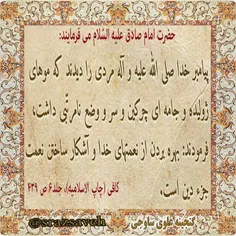 حضرت امام صادق علیه السّلام می فرمایند:
پیامبر خدا صلی الله علیه و آله مردی را دیدند که موهای
ژولیده و جامه ای چرکین و سر و وضع نامرتبی داشت،
فرمودند: بهره بردن از نعمتهای خدا و آشکار ساختن نعمت
جزء دین است.
کافی (چاپ الاسلامیه)، جلد ۶ ص ۴۳۹
@srazsaveh